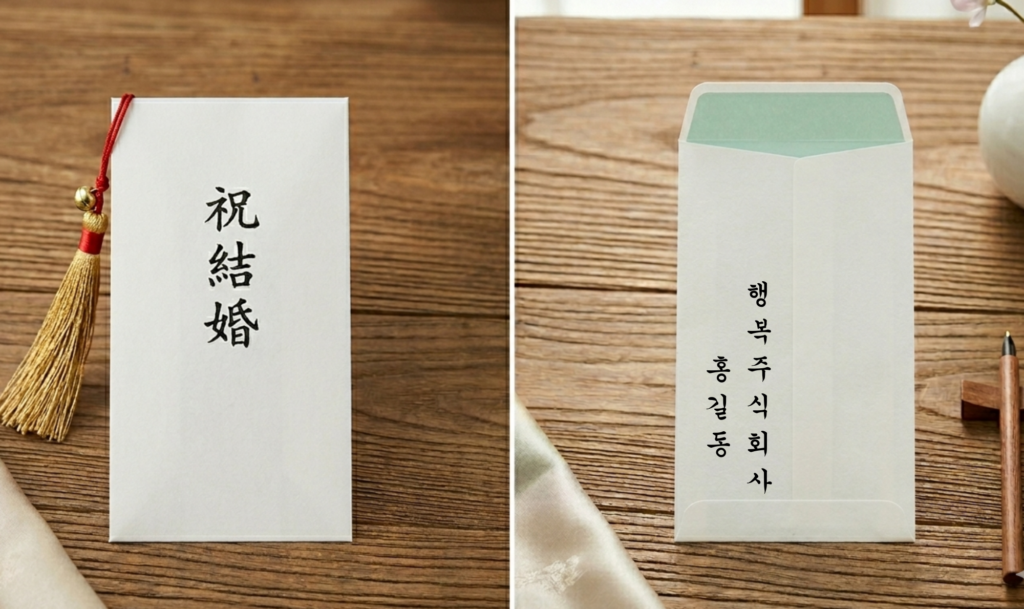 祝結婚
행복주식회사
홍길동